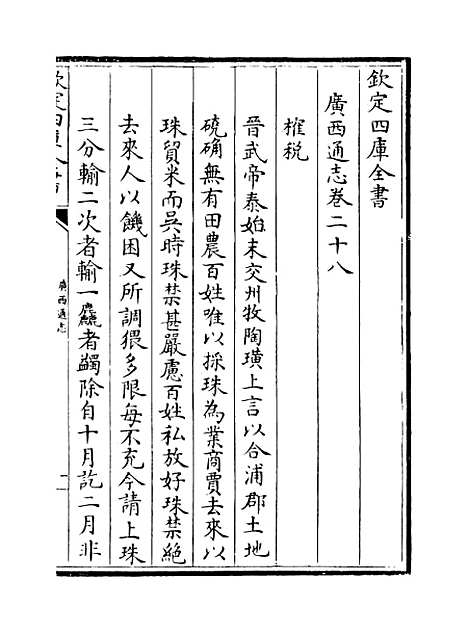 欽定四庫全書
廣西通志卷二十八
榷稅
晉武帝泰始末交州牧陶璜上言以合浦郡土地
磽确無有田農百姓唯以採珠為業商賈去來以
珠貿米而吳時珠禁甚嚴慮百姓私放好珠禁絕
去來人以饑困又所調猥多限每不充今請上珠
三分輸二次者輸一麤者蠲除自十月訖二月非
欽定四庫全書
廣西通志
一